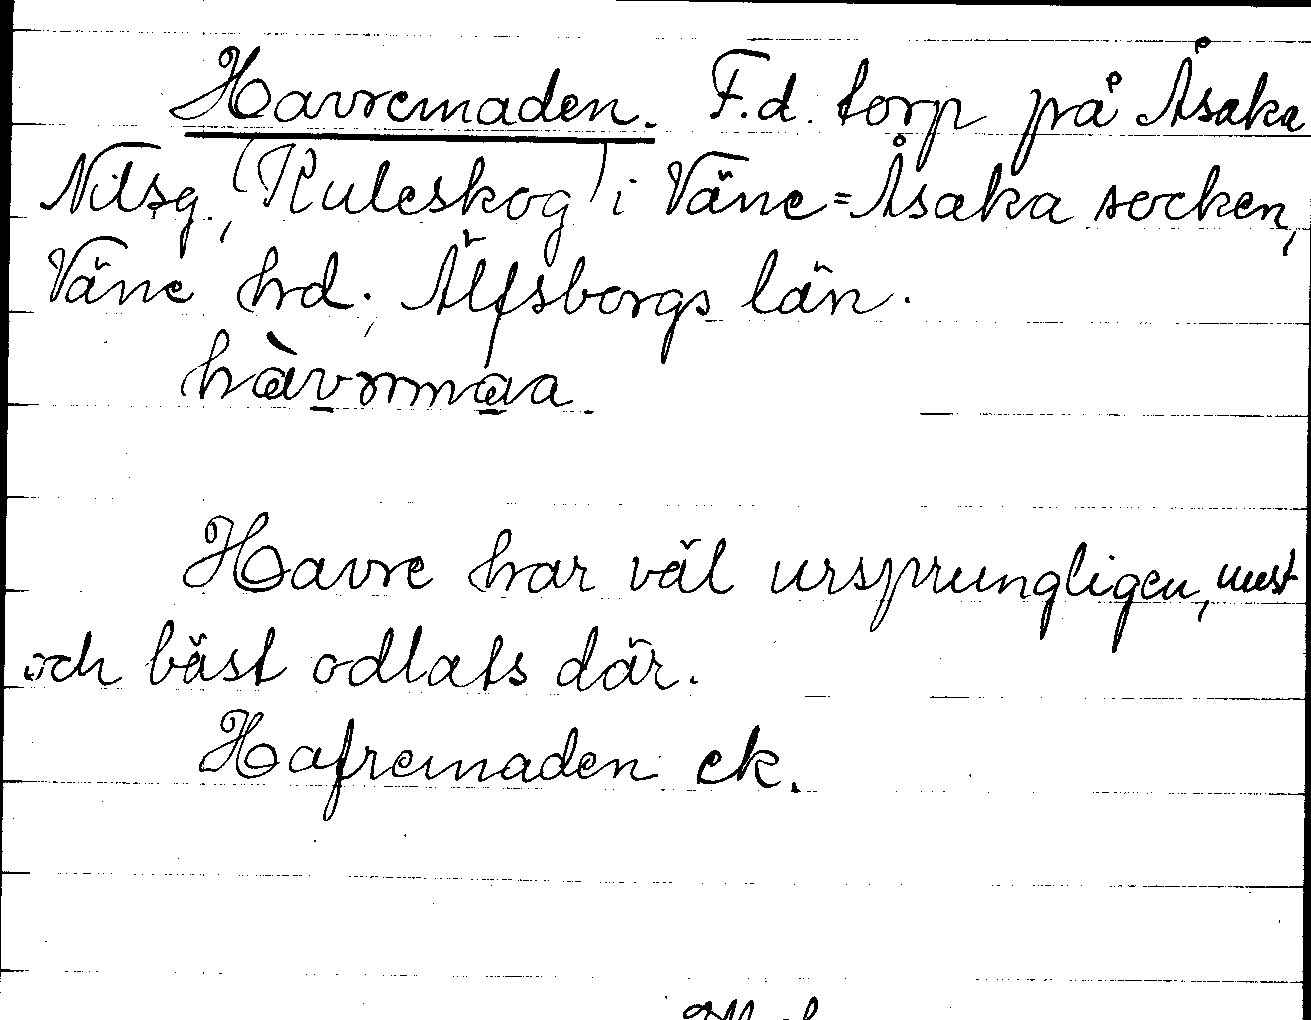 Havremaden. F.d. torp på Åsaka
Nilsg., (Kuleskog) i Väne=Åsaka socken,
Väne hrd. Älfsborgs län.
hàvrmmaa
Havre har väl ursprungligen, mest
och bäst odlats där.
Hafremaden ek.